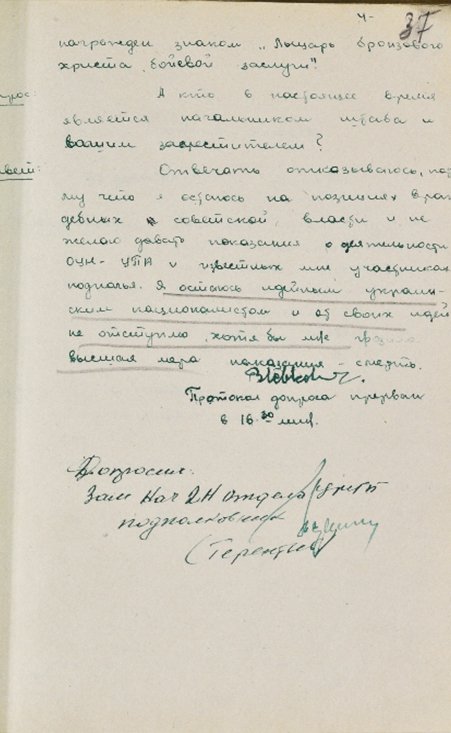 4-
37
награжден знаком „Лыцарь бронзового
христа боевой заслуги".
прос: А кто в настоящее время
является начальником штаба и
вашим заместителем?
вет: Отвечать отказываюсь, пото
му что я остаюсь на позициях враж
дебных советской власти и не
желаю давать показания о деятельности
ОУН-УПА и известных мне участниках
подполья. Я остаюсь идейным украин-
ским националистом и от своих идей
не отступлю, хотя бы мне грозила
высшая мера наказания - смерть.
Протокол допроса прерван
в 16 30 мин.
Допросил:
Зам Нач 2Н отдела
подполковник
(Терентьев)